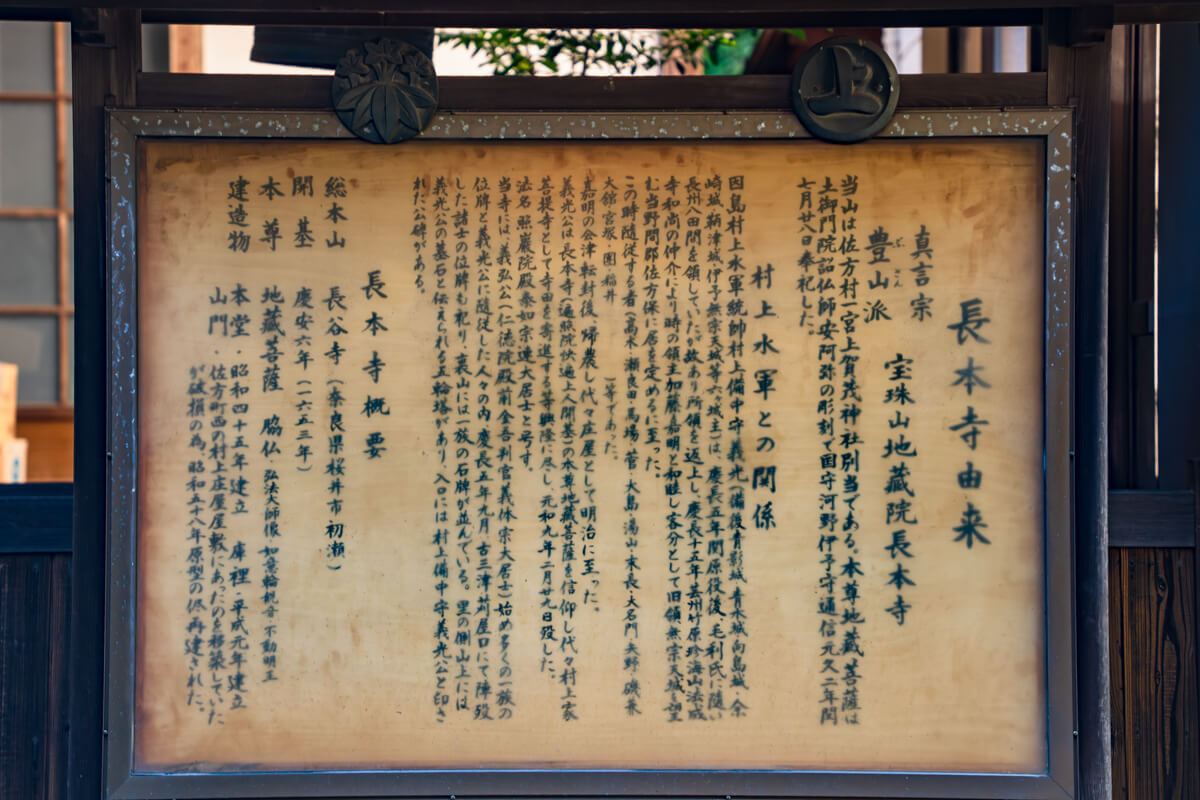 長本寺由来
真言宗
豊山派
ぶざん
宝珠山地蔵院長本寺
当山は佐方村一宮上賀茂神社別当である。本尊地蔵菩薩は
土御門院詔仏師安阿弥の彫刻で国守河野伊予守通信元久二年閏
七月廿八日奉祀した。
村上水軍との関係
因島村上水軍統帥村上備中守義光(備後青影城、青木城、向島城、余
崎城、鞆津城、伊予無宗天城等六ヶ城主)は、慶長五年関原役後、毛利氏に随い
長州八田間を領していたが故あり所領を返上し、慶長十五年芸州竹原珍海山法成
寺和尚の仲介により時の領主加藤嘉明と和睦し客分として旧領無宗天城を望
む当野間郡佐方保に居を定めるに至った。
この時随従する者(高木・瀬良田・馬場・菅・大島・湯山・末長・大名門・矢野・磯兼
大舘・宮塚・園・稲井 等であった。
嘉明の会津転封後、帰農し代々庄屋として明治に至った。
義光公は長本寺(遍照院快遍上人開基)の本尊地蔵菩薩を信仰し代々村上家
菩提寺として寺田を寄進する等興隆に尽し、元和九年二月廿九日歿した。
法名照巌院殿泰如宗連大居士と号す。
当寺には、義弘公(仁徳院殿前金吾判官義休宗大居士)始め多くの一族の
位牌と義光公に随従した人々の内、慶長五年九月古三津苅屋口にて陣歿
した諸士の位牌も祀り、裏山には一族の石牌が並んでいる。里の側山上には
義光公の墓石と伝えられる五輪塔があり、入口には村上備中守義光公と印さ
れた公碑がある。
長本寺概要
総本山 長谷寺(奈良県桜井市初瀬)
開基 慶安六年(一六五三年)
本尊 地蔵菩薩 脇仏 弘法大師像 如意輪観音・不動明王
建造物 本堂・昭和四十五年建立 庫裡・平成元年建立
山門・佐方町西の村上庄屋屋敷にあったのを移築していた
が破損の為、昭和五十八年原型の侭再建された。